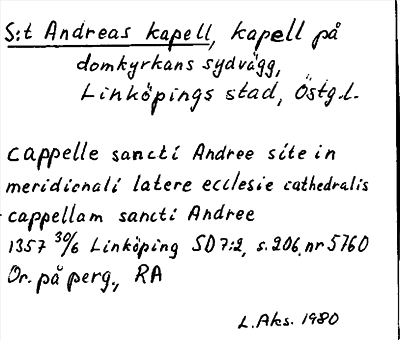 S:t Andreas kapell, kapell på
domkyrkans sydvägg,
Linköpings stad, Östg.l.
cappelle sancti Andree site in
meridionali latere ecclesie cathedralis
cappellam sancti Andree
1357 30/6 Linköping SD 7:2, s. 206, nr 5760
Or. på perg., RA
L. Aks. 1980